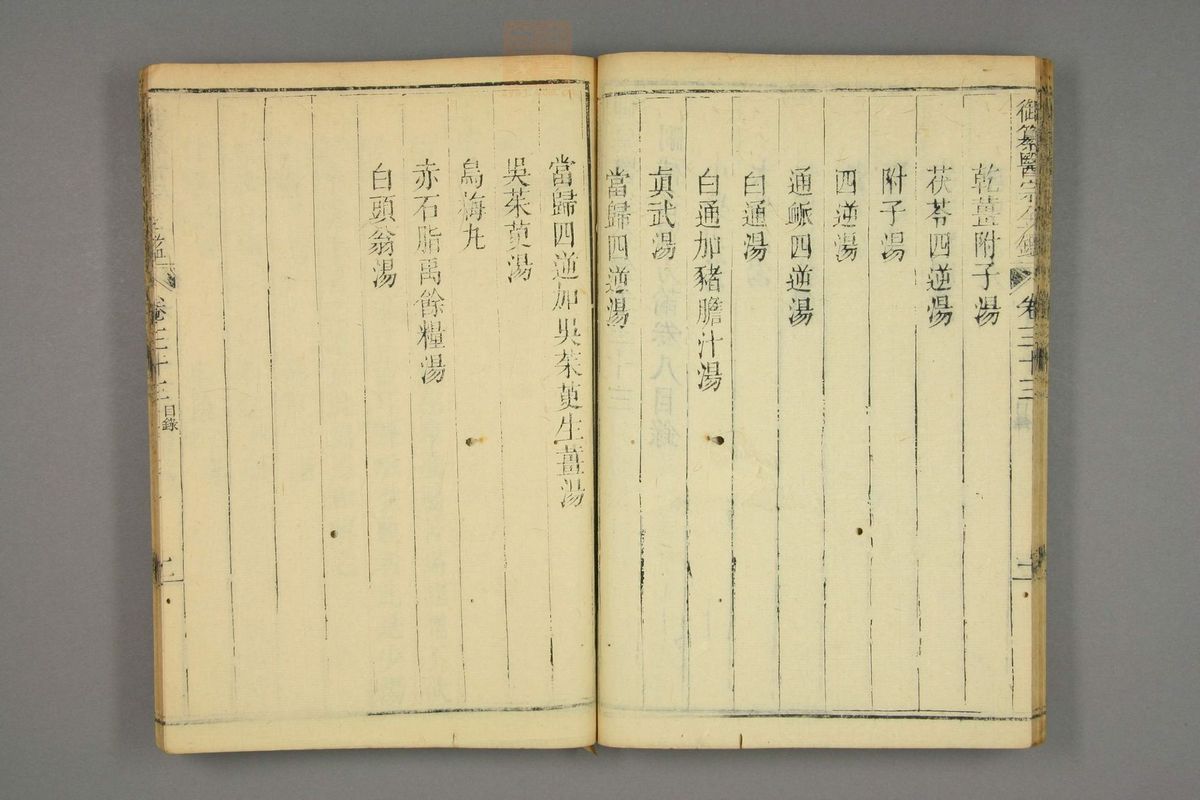 御纂醫宗金鑑 卷三十三
乾薑附子湯
茯苓四逆湯
附子湯
四逆湯
通脈四逆湯
白通湯
白通加豬膽汁湯
眞武湯
當歸四逆湯
當歸四逆加吳茱萸生薑湯
吳茱萸湯
烏梅丸
赤石脂禹餘糧湯
白頭翁湯
卷三十三 目錄